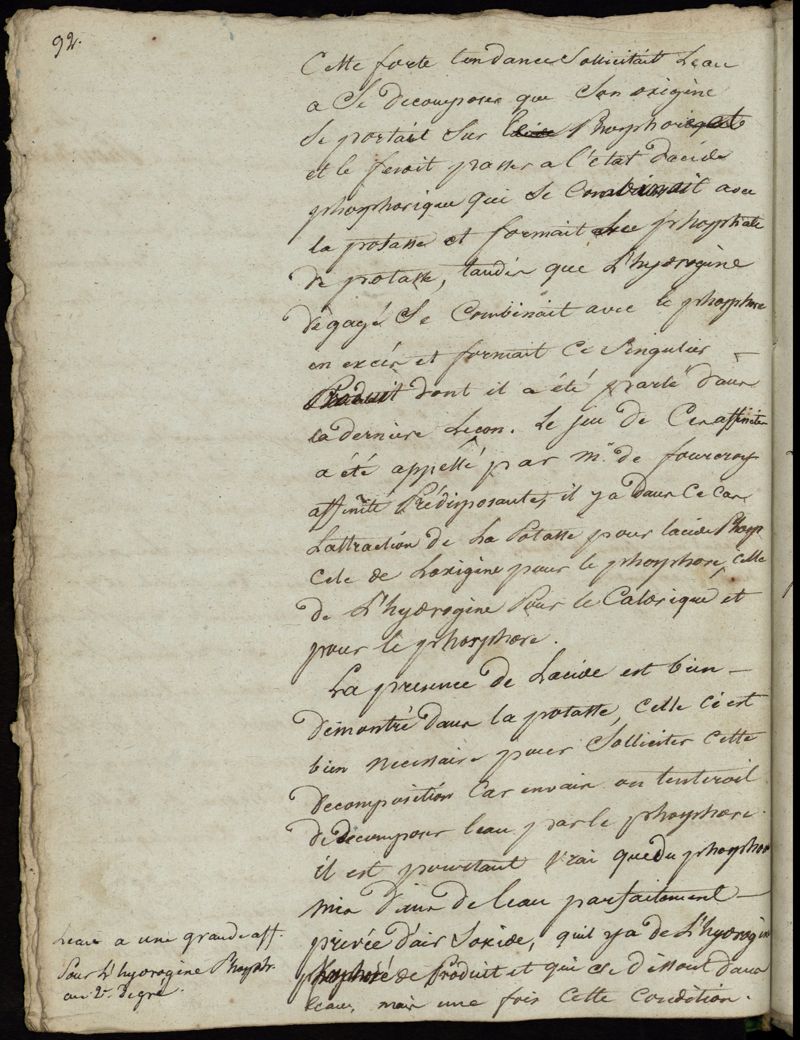 92.
Cette forte tendance Sollicitait Leau
a Se decomposer que Son oxigène
Se portait Sur Phosphore
et le feroit passer a l'état dacide
phosphorique qui Se Combinait avec
la potasse et formait phosphate
de potasse, tandis que L'hydrogène
dégagé Se Combinait avec le phosphore
en excés et formait Ce Singulier
Produit dont il a été parlé dans
la dernière Lecon. Le jeu de Ces affinités
a été appellé par mr. de fourcroy
affinité Prédisposante, il ya dans ce cas
Lattraction de La Potasse pour lacide Phosp
Cele de Loxigène pour le phosphore, celle
de L'hydrogène Pour le Calorique et
pour le phosphore.
La presence de Lacide est bien
démontré dans la potasse, celle ci est
bien necessaire pour Solliciter cette
decomposition Car envain on tenteroit
de decomposer leau par le phosphore
il est pourtant vrai que du phosphor
mis dans de leau parfaitement
privée d'air Soxide, quil ya de L'hydrogèn
phosphoré de Produit et qui se dissout dans
leau, mais une fois Cette Condition.
Leau a une grande aff.
Pour L'hydrogène Phosphr.
au 2e. Degré.